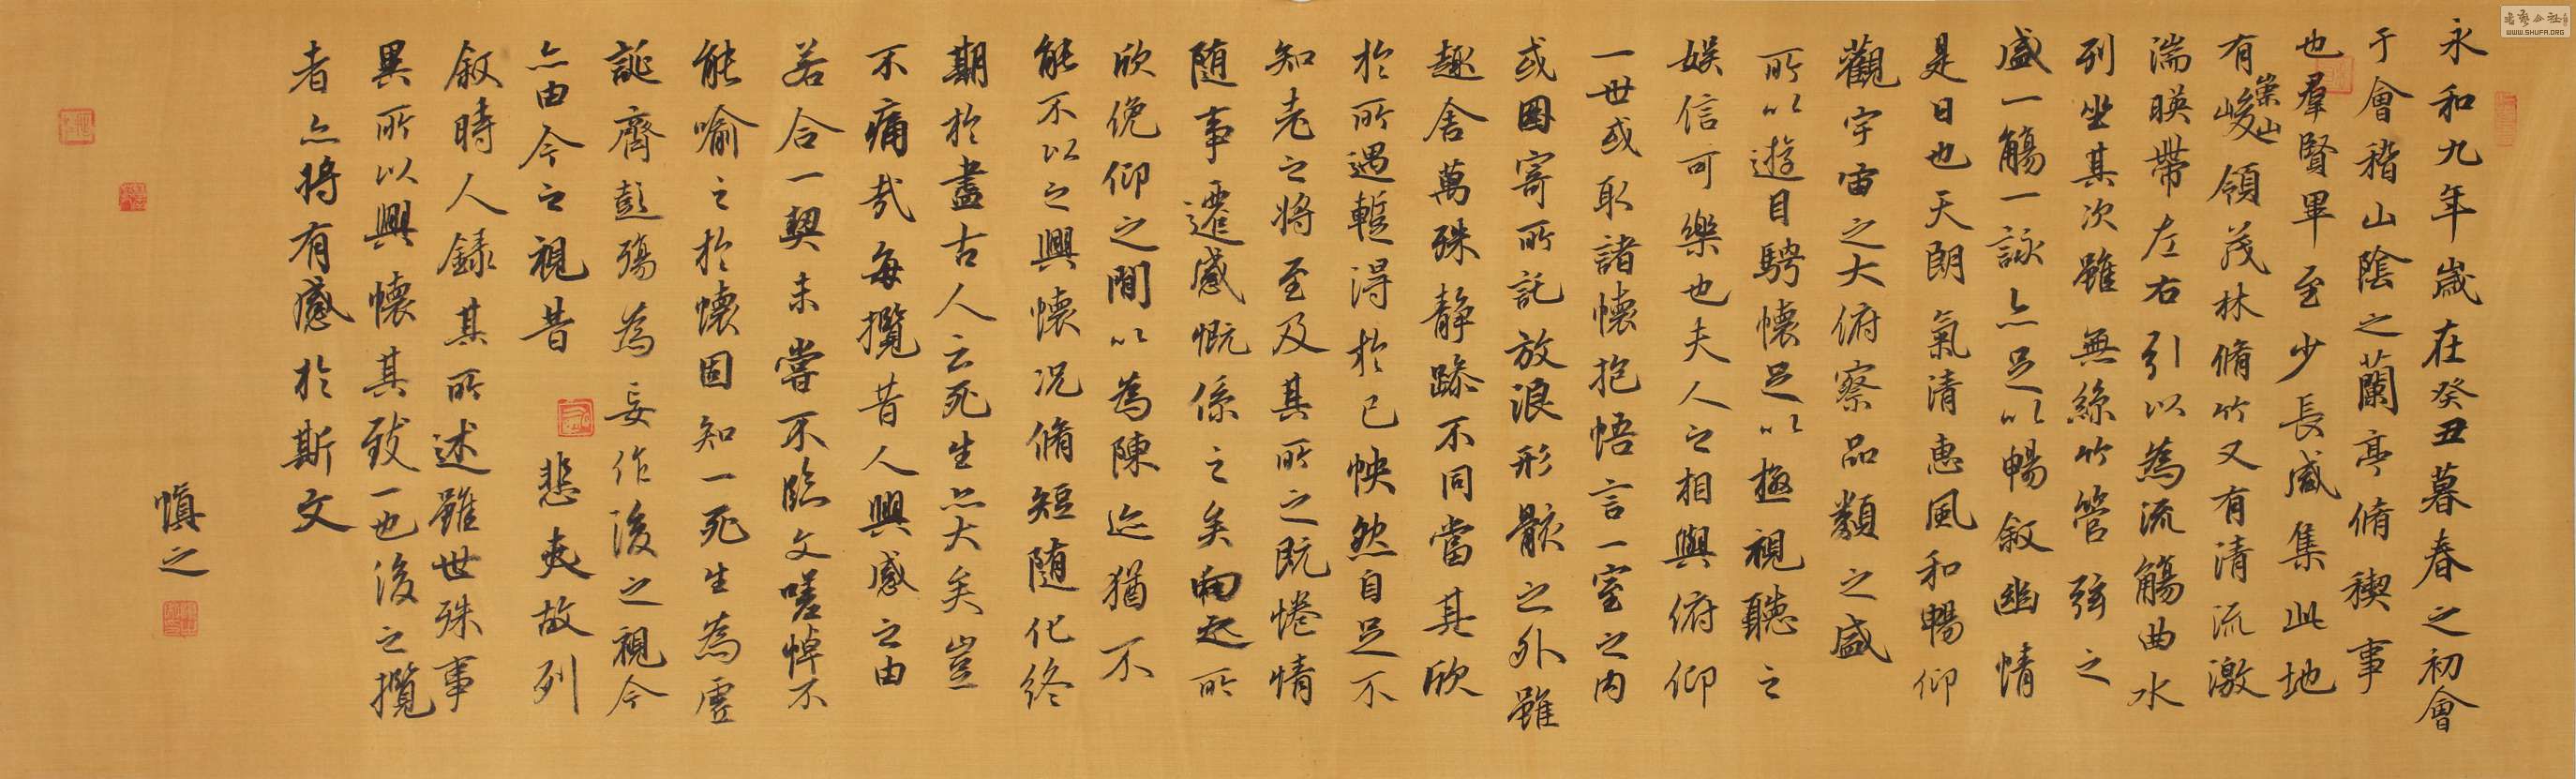 永和九年歲在癸丑暮春之初會
于會稽山陰之蘭亭脩稧事
也羣賢畢至少長咸集此地
有崇山峻領茂林脩竹又有清流激
湍暎帶左右引以為流觴曲水
列坐其次雖無絲竹管弦之
盛一觴一詠亦足以暢敘幽情
是日也天朗氣清惠風和暢仰
觀宇宙之大俯察品類之盛
所以遊目騁懷足以極視聽之
娛信可樂也夫人之相與俯仰
一世或取諸懷抱悟言一室之內
或因寄所託放浪形骸之外雖
趣舍萬殊靜躁不同當其欣
於所遇暫得於己怏然自足不
知老之將至及其所之既惓情
隨事遷感慨係之矣向之所
欣俛仰之間以為陳迹猶不
能不以之興懷況脩短隨化終
期於盡古人云死生亦大矣豈
不痛哉每攬昔人興感之由
若合一契未嘗不臨文嗟悼不
能喻之於懷固知一死生為虛
誕齊彭殤為妄作後之視今
亦由今之視昔 悲夫故列
敘時人錄其所述雖世殊事
異所以興懷其致一也後之攬
者亦將有感於斯文
慎之
WWW.SHUFA.ORG